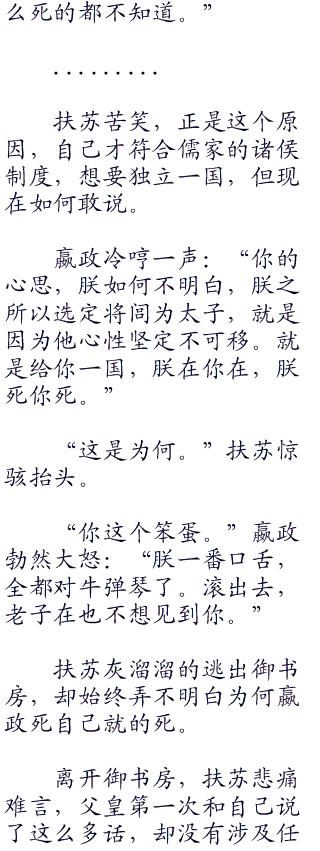 么死的都不知道。”
.........
扶苏苦笑，正是这个原
因，自己才符合儒家的诸侯
制度，想要独立一国，但现
在如何敢说。
嬴政冷哼一声：“你的
心思，朕如何不明白，朕之
所以选定将闾为太子，就是
因为他心性坚定不可移。就
是给你一国，朕在你在，朕
死你死。”
“这是为何。”扶苏惊
骇抬头。
“你这个笨蛋。”嬴政
勃然大怒：“朕一番口舌，
全都对牛弹琴了。滚出去，
老子在也不想见到你。”
扶苏灰溜溜的逃出御书
房，却始终弄不明白为何嬴
政死自己就的死。
离开御书房，扶苏悲痛
难言，父皇第一次和自己说
了这么多话，却没有涉及任